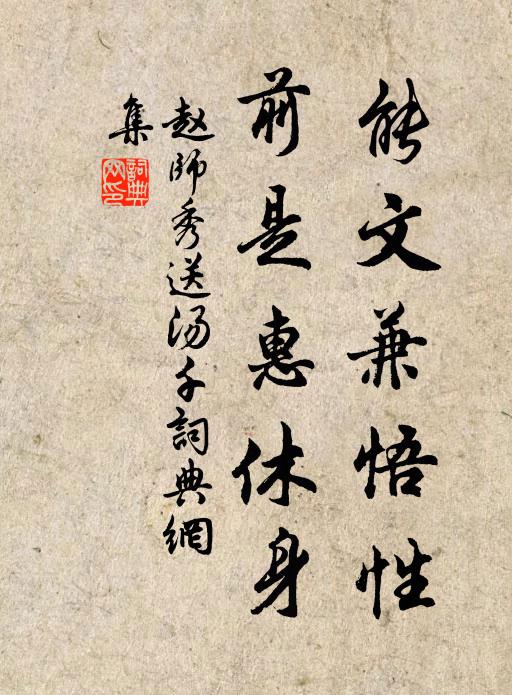 能文兼悟性
前是惠休身
赵师秀送汤千詞典網
集
詞典
网印